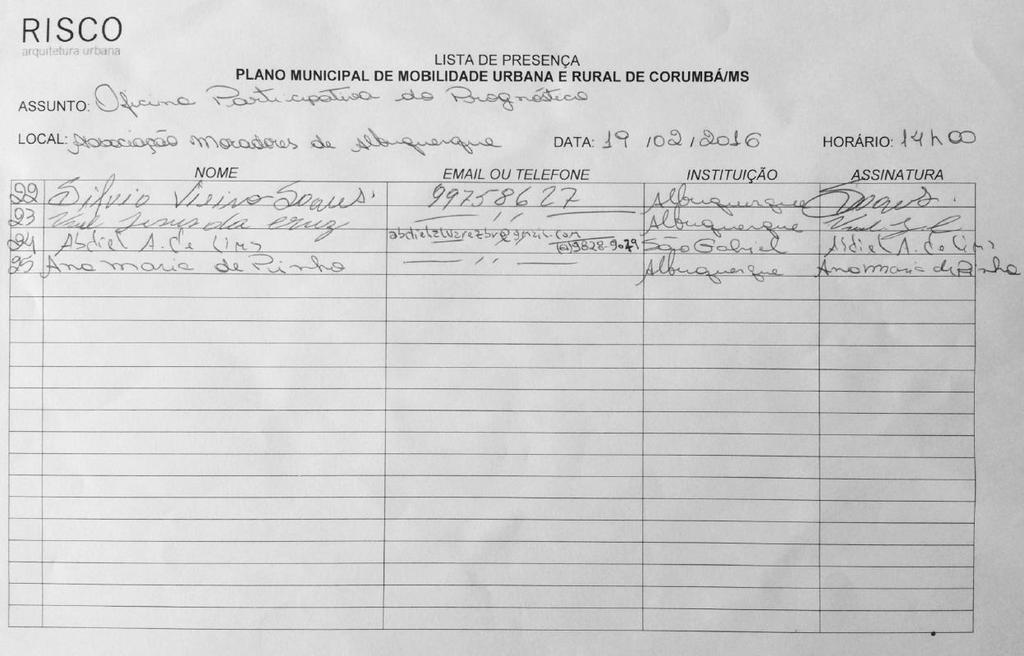 RISCO
arquitetura urbana
LISTA DE PRESENÇA
PLANO MUNICIPAL DE MOBILIDADE URBANA E RURAL DE CORUMBÁ/MS
ASSUNTO: Oficina Participativa do Prognóstico
LOCAL: Associação Moradores de Albuquerque DATA: 19/02/2016 HORÁRIO: 14h00
NOME EMAIL OU TELEFONE INSTITUIÇÃO ASSINATURA
22 Silvio Vieira Soares. 99758627 Albuquerque Soares.
23 Jesus da Cruz — ,, — Albuquerque
24 Abdiel A. de Lima (67)9828-9029 São Gabriel Abdiel A. de Lima
25 Ana Maria de Pinho — ,, — Albuquerque Ana Maria de Pinho